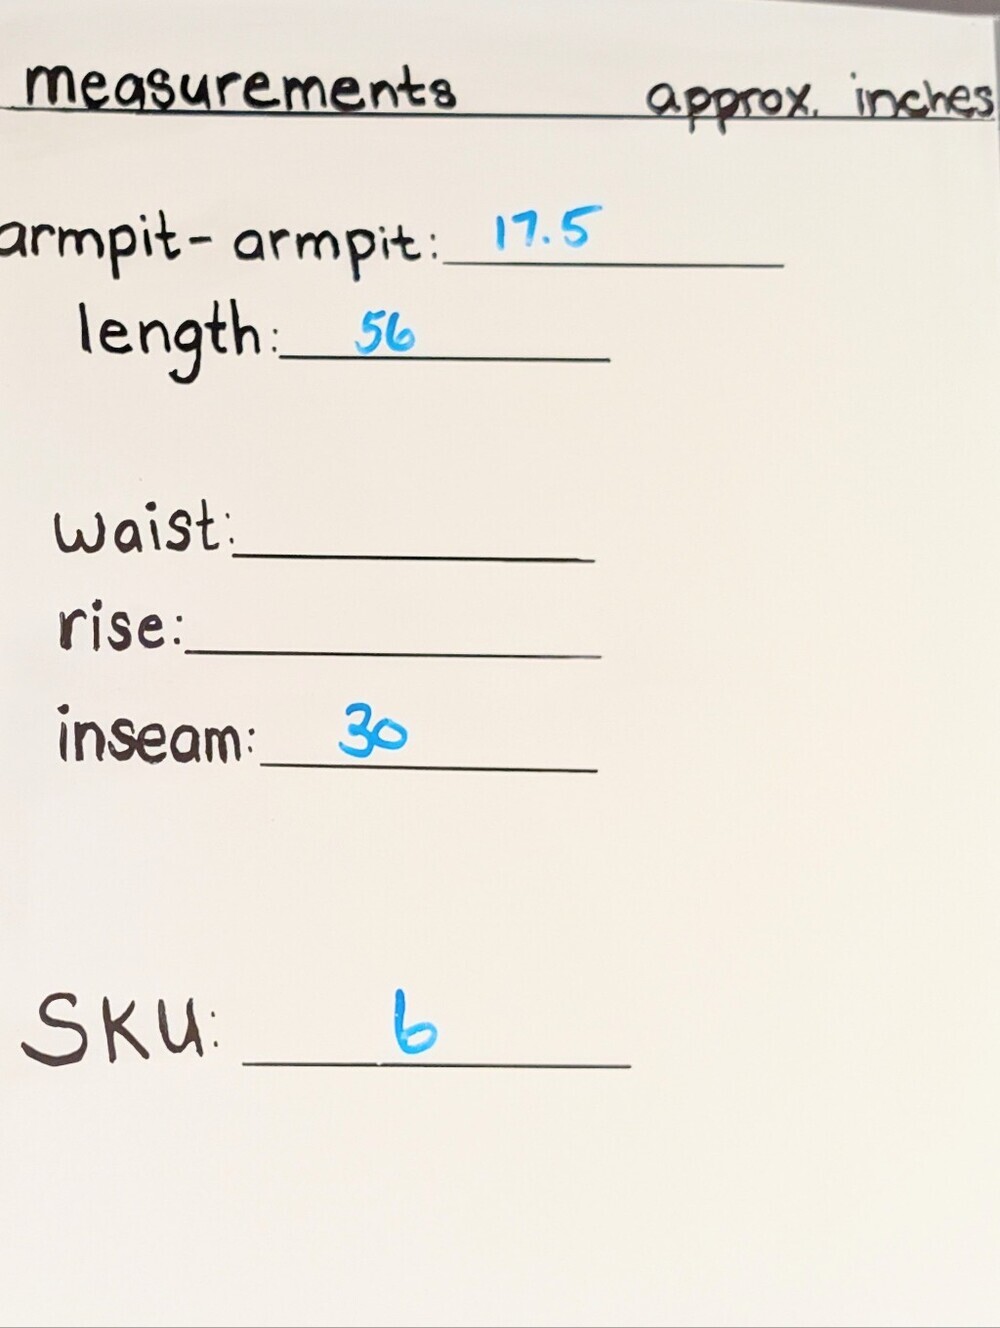 measurements approx. inches
armpit-armpit: 17.5
length: 56
waist:
rise:
inseam: 30
SKU: 6